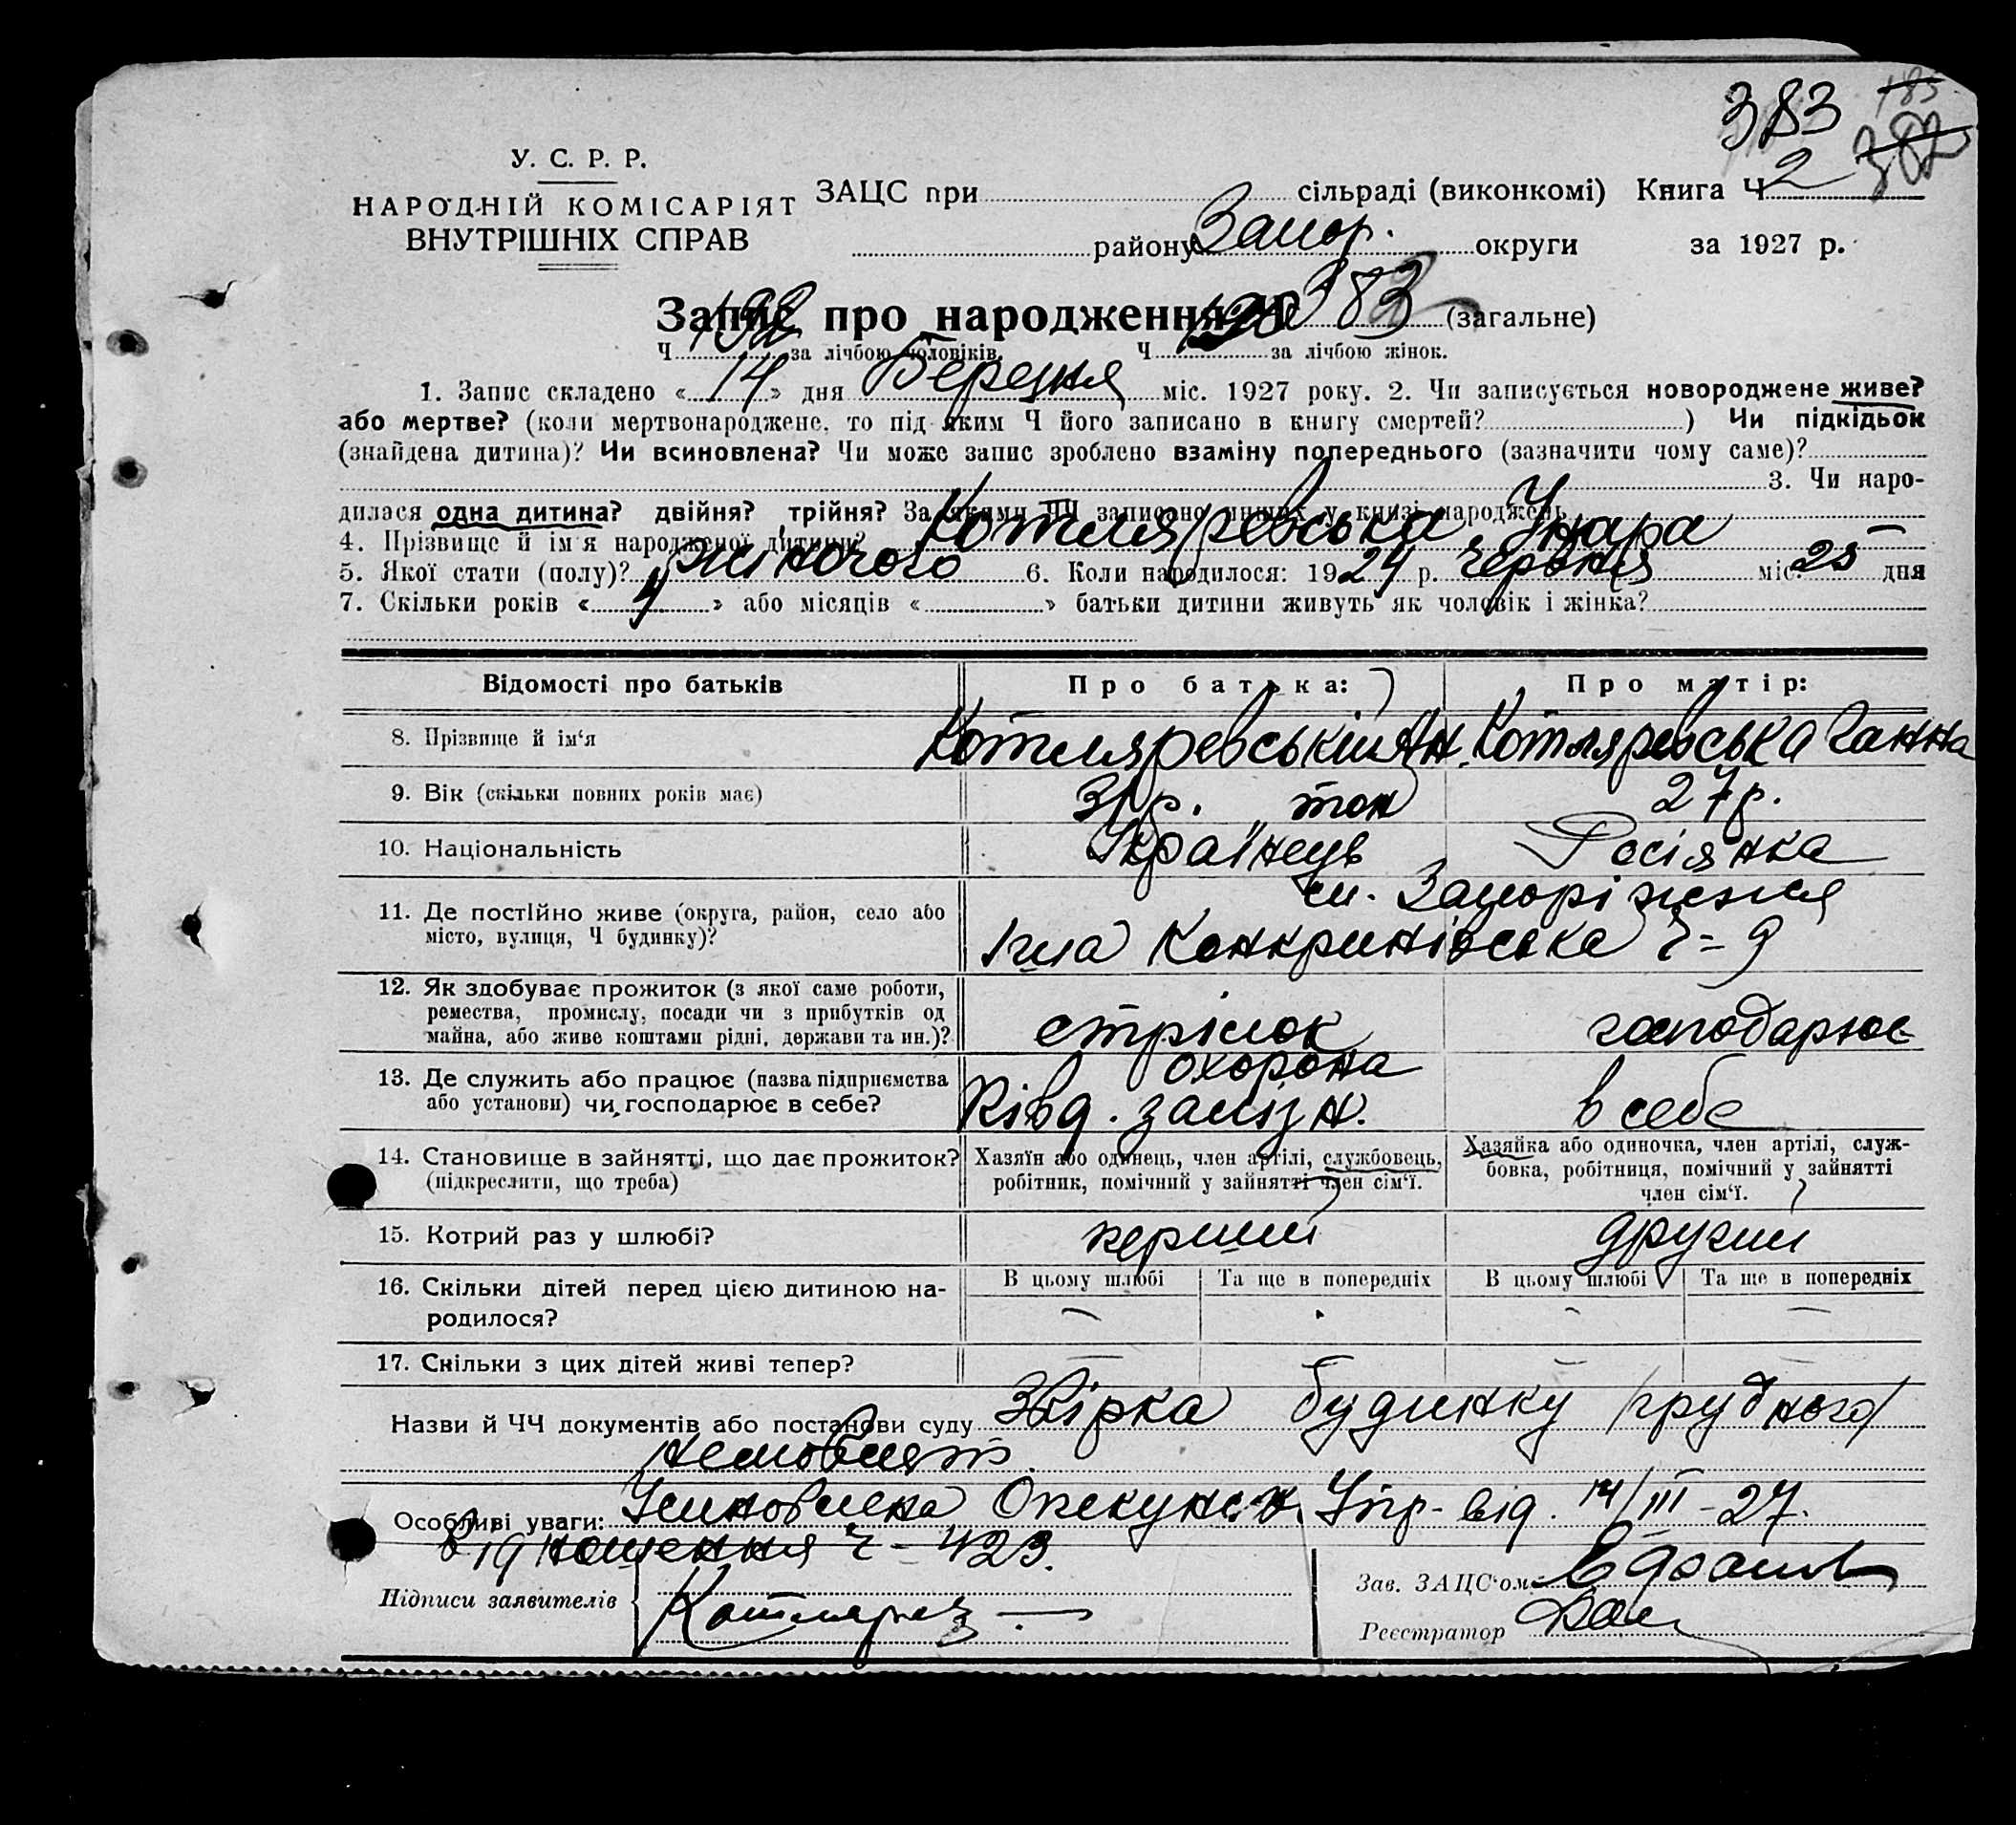 383 185
382
У. С. Р. Р.
НАРОДНІЙ КОМІСАРІЯТ
ВНУТРІШНІХ СПРАВ
ЗАЦС при сільраді (виконкомі) Книга Ч 2
району Запор. округи за 1927 р.
Запис про народження Ч 383 (загальне)
Ч 192 за лічбою чоловіків. Ч за лічбою жінок.
1. Запис складено « 14 » дня Березня міс. 1927 року. 2. Чи записується новороджене живе?
або мертве? (коли мертвонароджене, то під яким Ч його записано в книгу смертей? ) Чи підкідьок
(знайдена дитина)? Чи всиновлена? Чи може запис зроблено взаміну попереднього (зазначити чому саме)?
3. Чи наро-
дилася одна дитина? двійня? трійня? За якими ЧЧ записано инших у книзі народжень
4. Прізвище й ім'я народженої дитини? Котляревська
5. Якої стати (полу)? жіночого 6. Коли народилося: 1924 р. червня міс. 25 дня
7. Скільки років « 4 » або місяців « » батьки дитини живуть як чоловік і жінка?
Відомості про батьків Про батька: Про матір:
8. Прізвище й ім'я Котляревський Ан. Котляревська Ганна
9. Вік (скільки повних років має) 31 р. тон 27 р.
10. Національність Українець Росіянка
11. Де постійно живе (округа, район, село або м. Запоріжжя
місто, вулиця, Ч будинку)? Канкринівська Ч = 9
12. Як здобуває прожиток (з якої саме роботи,
ремества, промислу, посади чи з прибутків од стрілок господарює
майна, або живе коштами рідні, держави та ин.)?
охорона
13. Де служить або працює (назва підприємства
або установи) чи господарює в себе? Півд. залізн. в себе
14. Становище в зайнятті, що дає прожиток? Хазяїн або одинець, член артілі, службовець, Хазяйка або одиночка, член артілі, служ-
(підкреслити, що треба) робітник, помічний у зайнятті член сім'ї. бовка, робітниця, помічний у зайнятті
член сім'ї.
15. Котрий раз у шлюбі? перший другий
16. Скільки дітей перед цією дитиною на- В цьому шлюбі Та ще в попередніх В цьому шлюбі Та ще в попередніх
родилося? – – –
17. Скільки з цих дітей живі тепер? – – – –
Назви й ЧЧ документів або постанови суду будинку грудного
немовляти
Особливі уваги: Усиновлена Опекунськ. Упр. від. 14/III-27.
Відношення Ч – 423.
Підписи заявителів
Зав. ЗАЦС'ом
Реєстратор